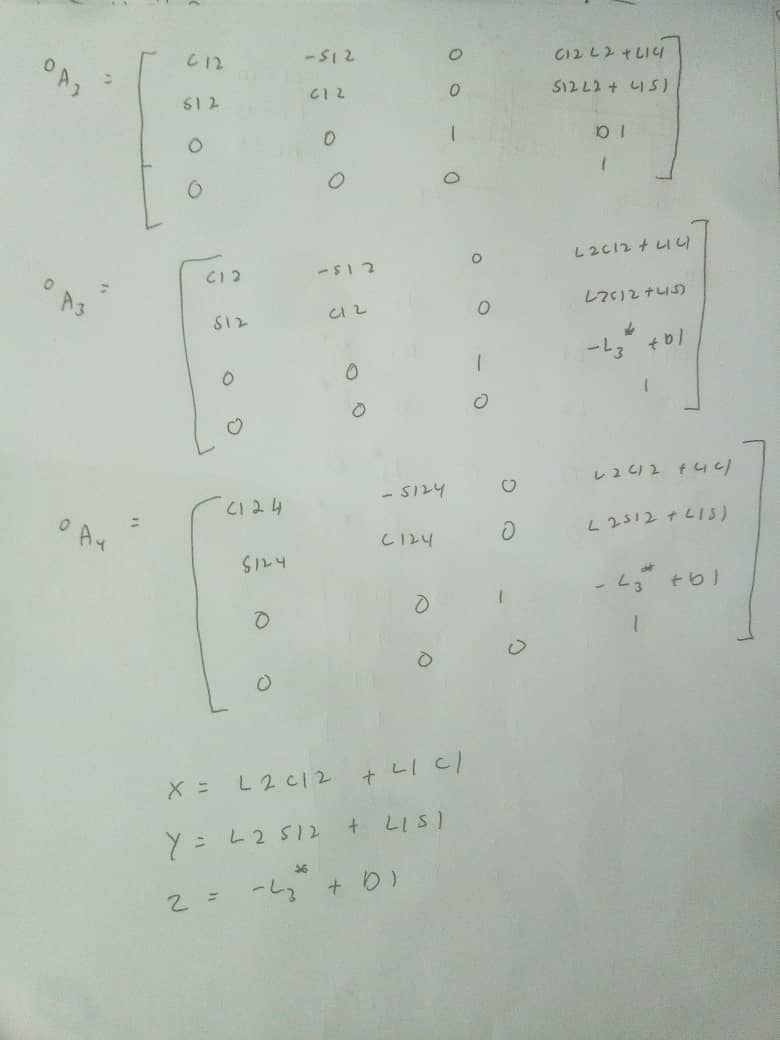 ⁰A₂ = [ C12 -S12 0 C12 L2 + L1C1 ]
S12 C12 0 S12 L2 + L1S1
0 0 1 D1
0 0 0 1
⁰A₃ = [ C12 -S12 0 L2C12 + L1C1 ]
S12 C12 0 L2C12 + L1S1
0 0 1 -L₃* + D1
0 0 0 1
⁰A₄ = [ C124 -S124 0 L2C12 + L1C1 ]
S124 C124 0 L2S12 + L1S1
0 0 1 -L₃* + D1
0 0 0 1
X = L2C12 + L1C1
Y = L2S12 + L1S1
Z = -L₃* + D1